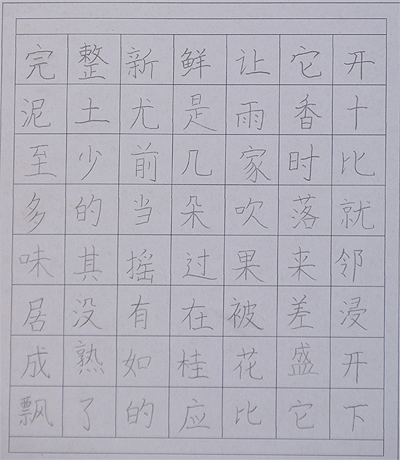 完整新鲜让它开
泥土尤是雨香十
至少前几家时比
多的当朵吹落就
味其摇过果来邻
居没有在被差浸
成熟如桂花盛开
飘了的应比它下